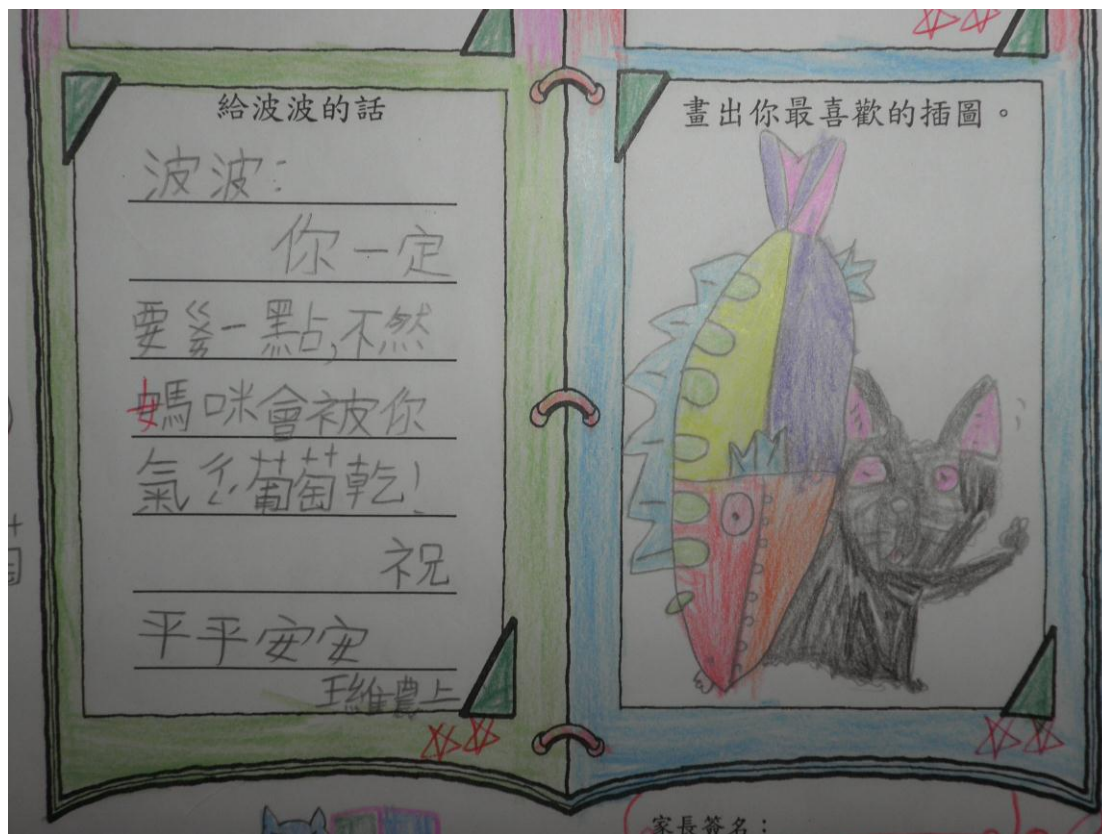 給波波的話
波波:
你一定
要ㄍㄨㄞ一點,不然
媽咪會被你
氣ㄔㄥˊ葡萄乾!
祝
平平安安
王維農上
畫出你最喜歡的插圖。
家長簽名: